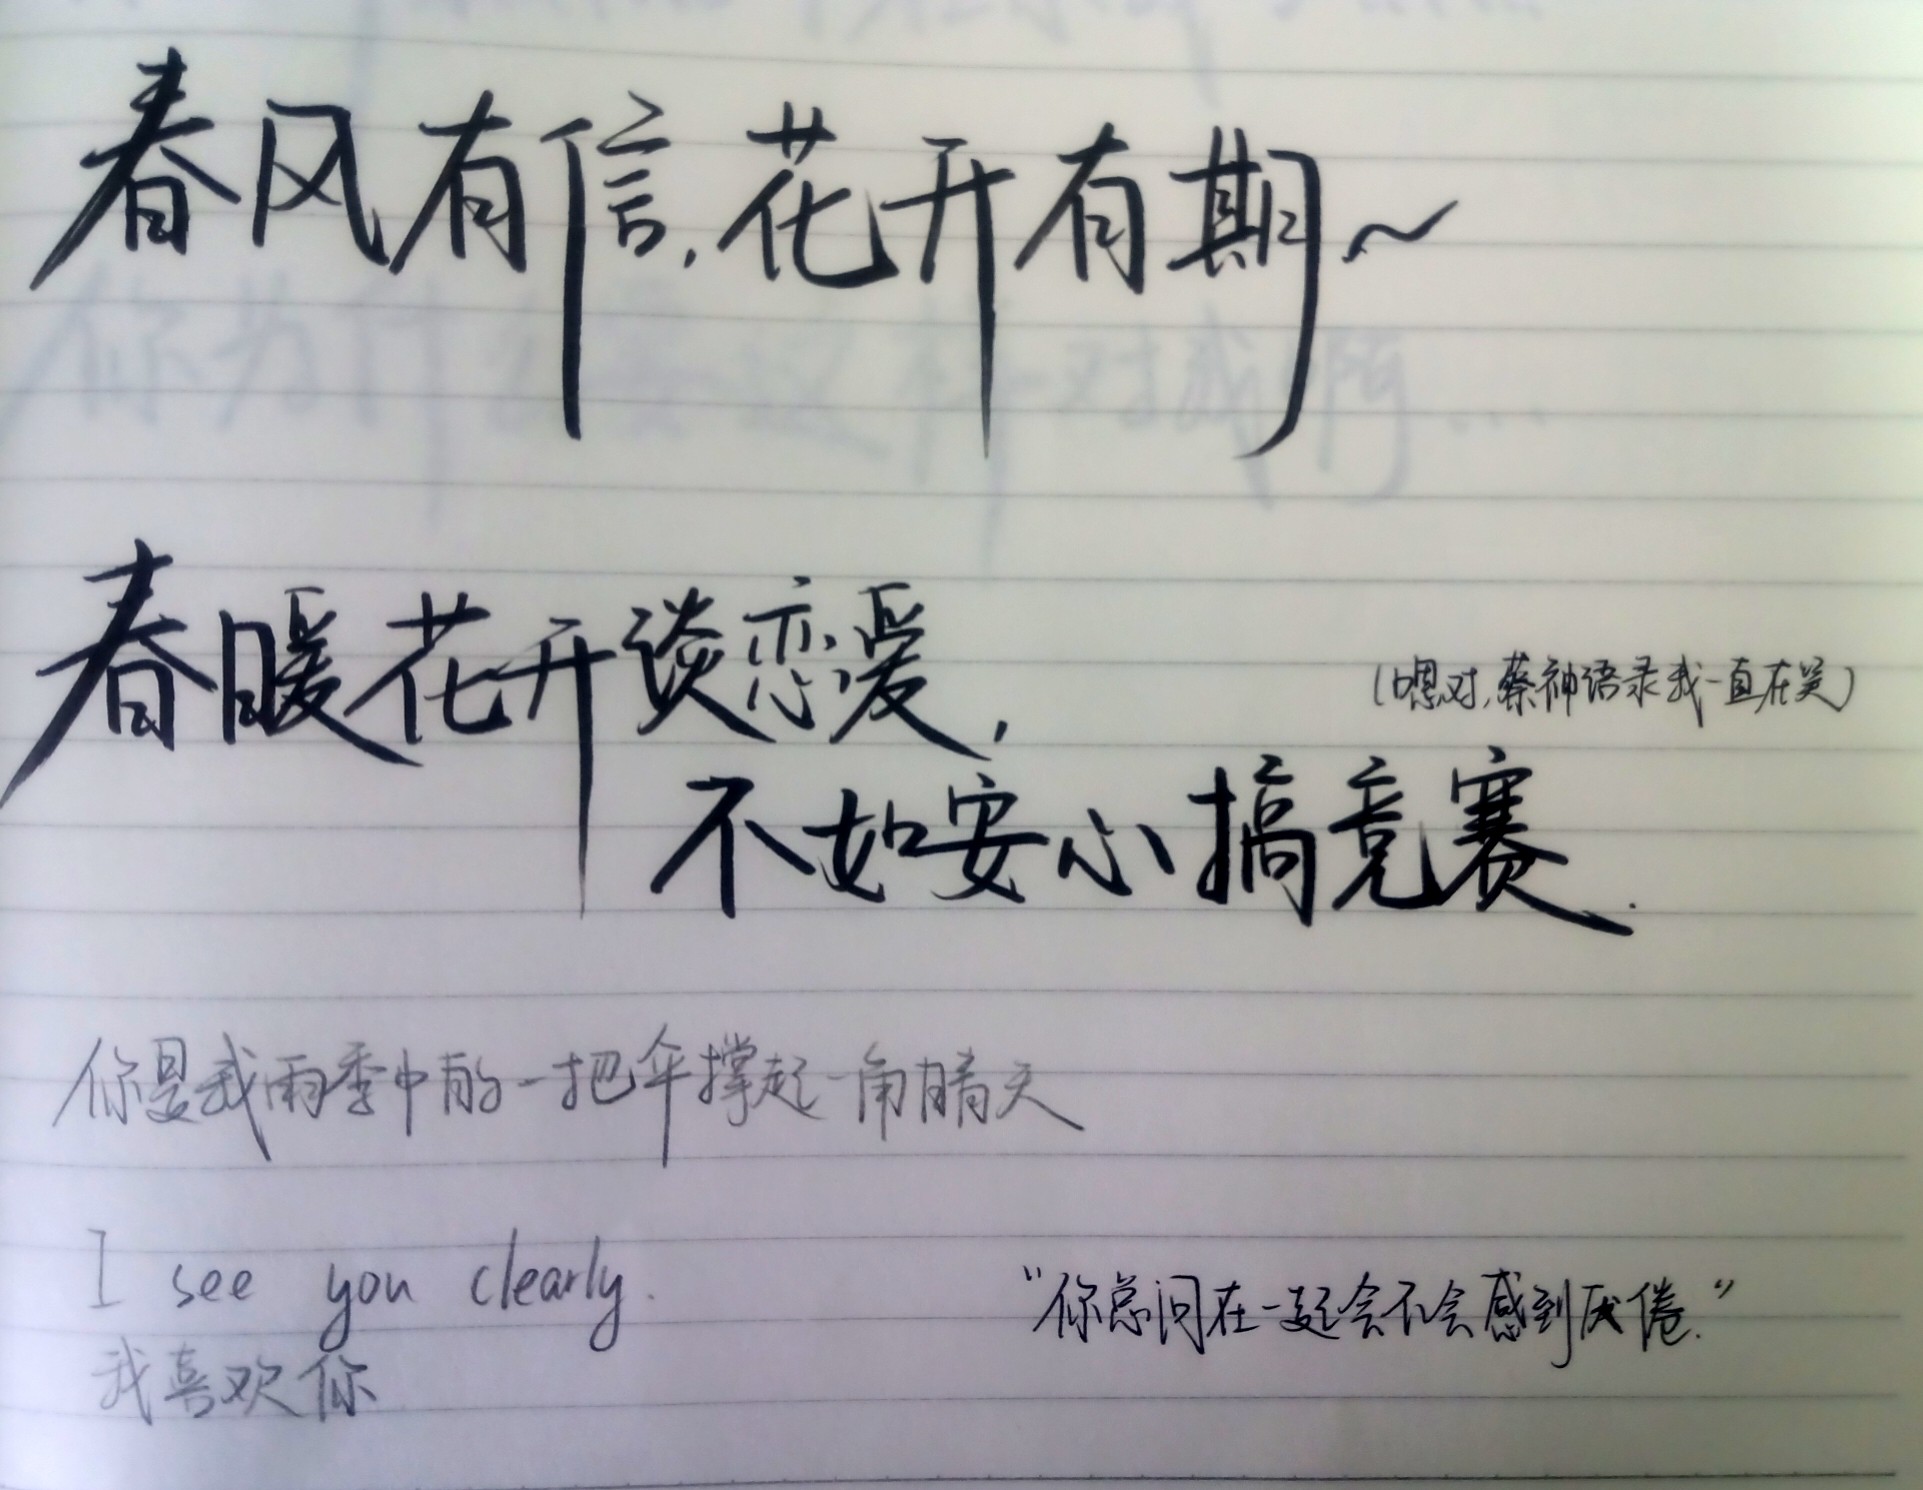 春风有信,花开有期~
春暖花开谈恋爱,
(嗯对,蔡神语录我一直在笑)
不如安心搞竞赛.
你是我雨季中有的一把伞撑起一角晴天
I see you clearly.
“你总问在一起会不会感到厌倦.”
我喜欢你